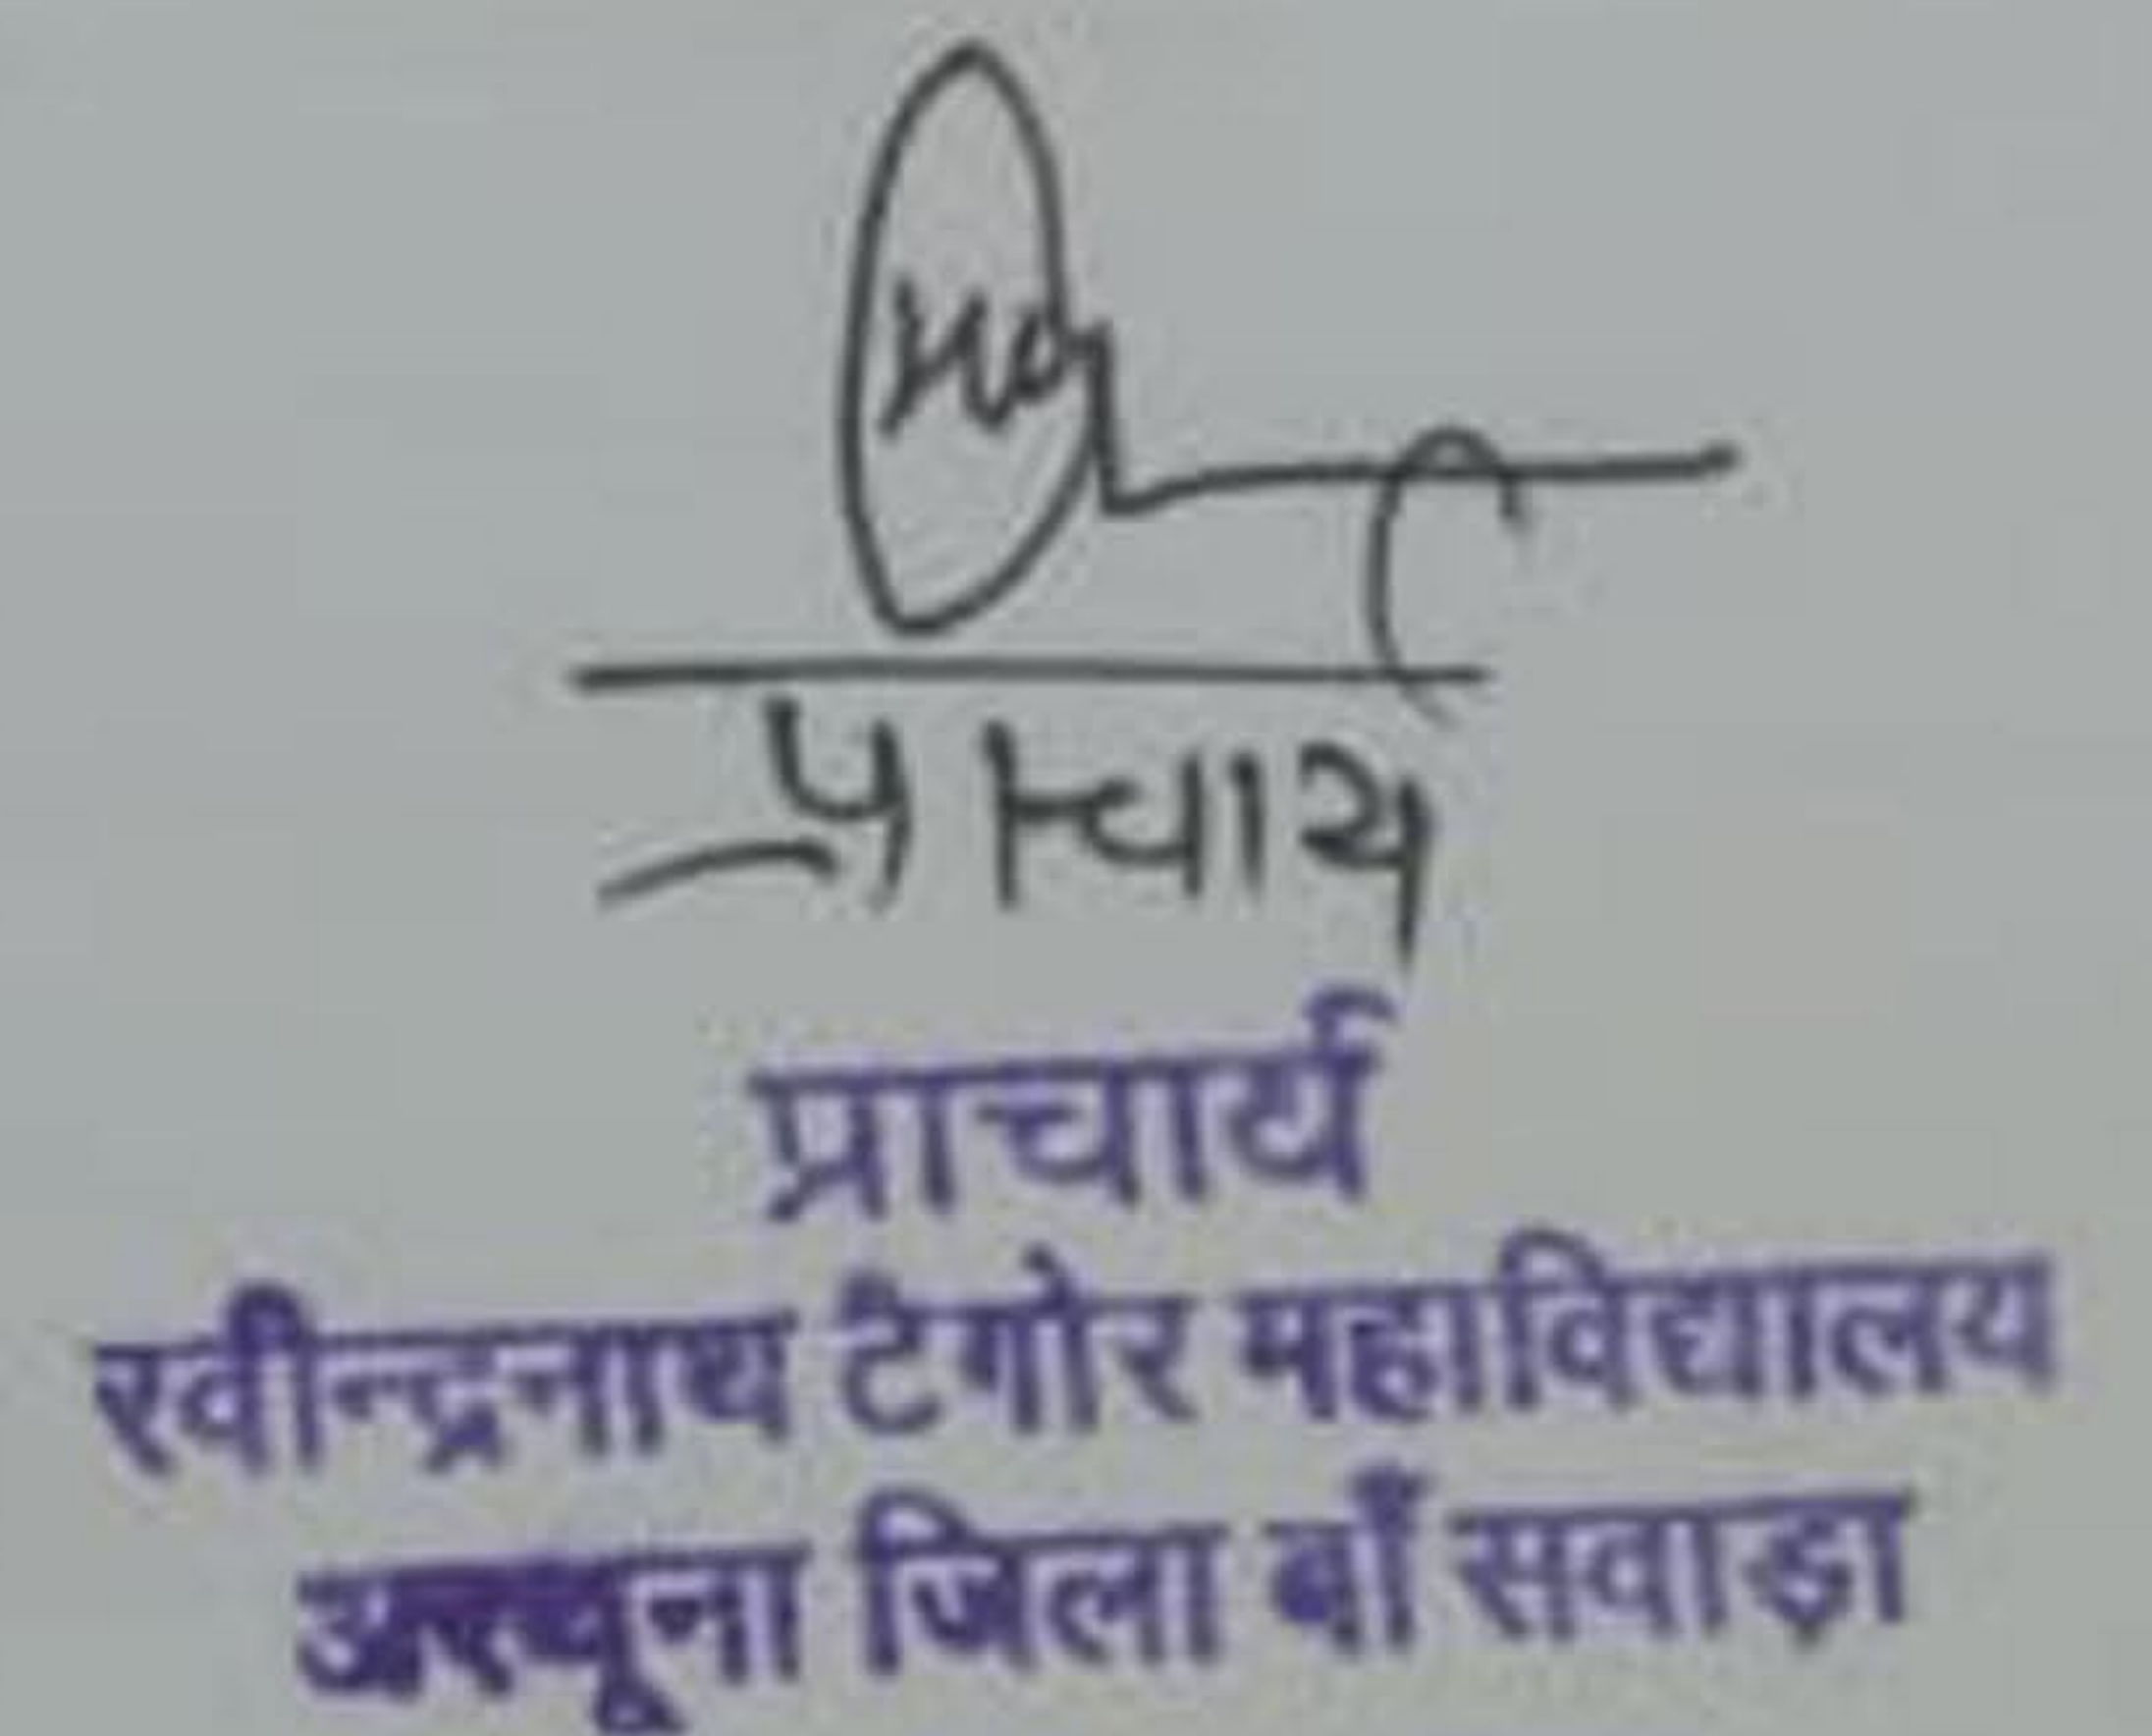 प्राचार्य
प्राचार्य
रवीन्द्रनाथ टैगोर महाविद्यालय
अरथूना जिला बाँसवाड़ा